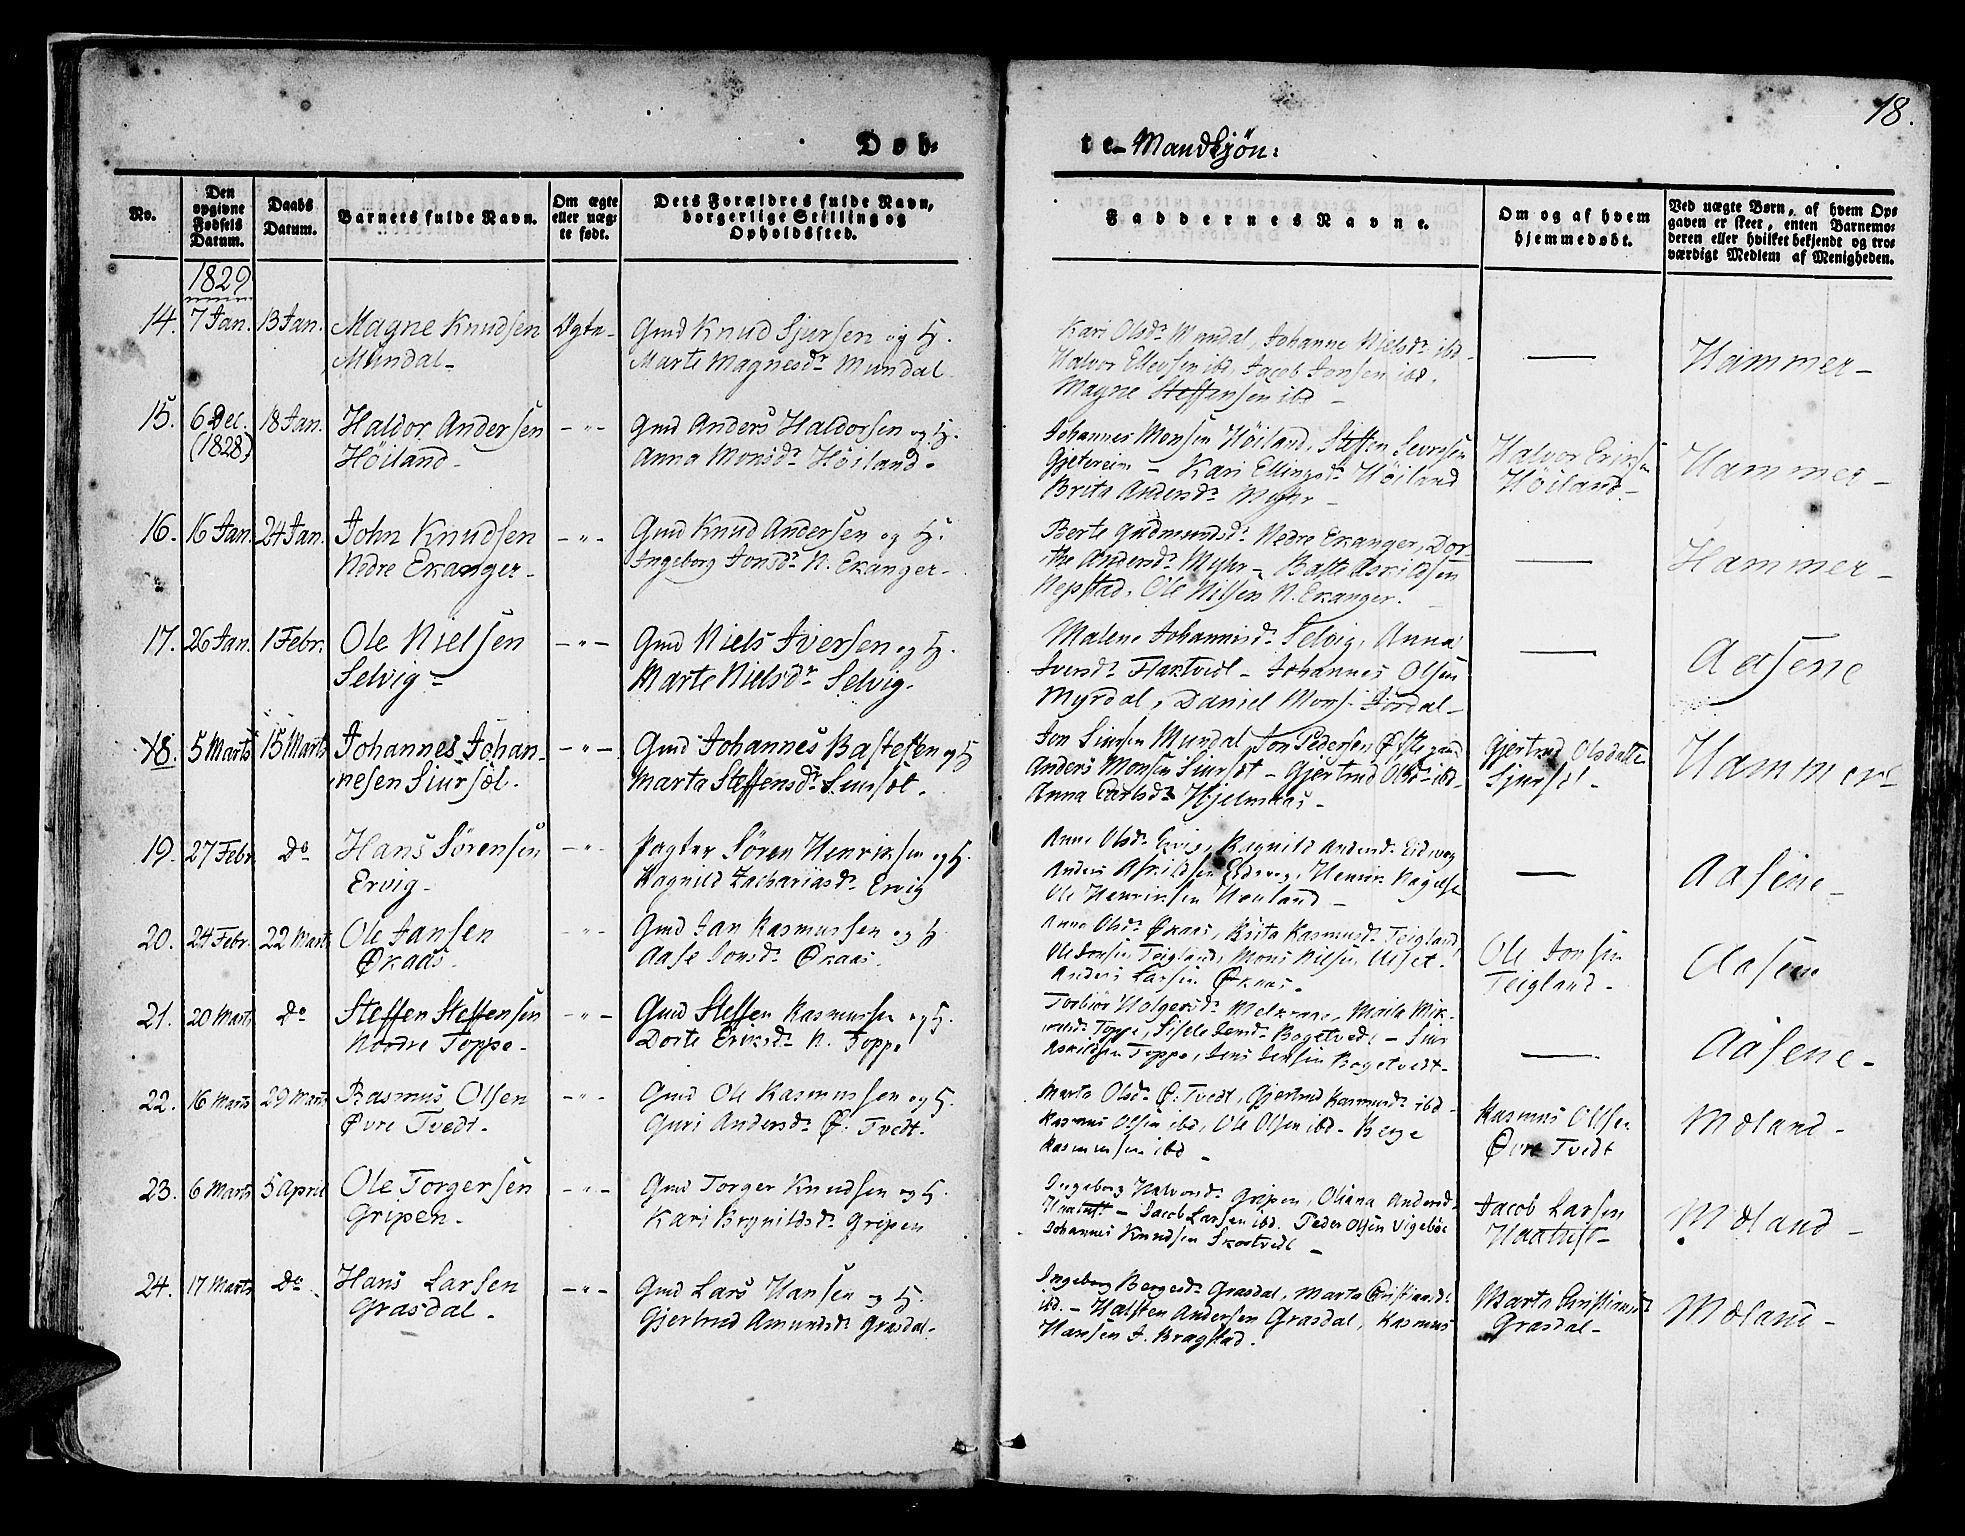 18.
Døb-
te Mandkjøn:
No.
Den opgivne Fødsels Datum.
Daabs Datum.
Barnets fulde Navn.
Om ægte eller uægte født.
Dets Forældres fulde Navn, borgerlige Stilling og Opholdssted.
Faddernes Navne.
Om og af hvem hjemmedøbt.
Ved uægte Børn, af hvem Opgaven er skeet, enten Barnemoderen eller hvilket bekjendt og troværdigt Medlem af Menigheden.
1829
14. 7 Jan. 13 Jan. Magne Knudsen Ægte- Gmd Knud Sjursen og H.
Mundal- Marte Magnesdr Mundal
Kari Olsdr Mundal, Johanne Nielsdr ibd-
Halvor Ellevsen ibd, Jacob Jonsen ibd.
Magne Steffensen ibd -
— Hammer-
15. 6 Dec. 18 Jan. Haldor Andersen -"- Gmd Anders Haldorsen og H.
(1828) Höiland- Anna Monsdr Höiland.
Johannes Monsen Höiland, Steffen
Gjetereim - Kari Ellingsdr Höiland
Brita Andersdr Myhr -
Halvor Eriksen
Höiland-
Hammer-
16. 16 Jan. 24 Jan. John Knudsen -"- Gmd Knud Andersen og H.
Nedre Ekanger- Ingeborg Jonsdr N. Ekanger-
Berte Gudmundsdr Nedre Ekanger, Dor-
the Andersdr Myhr - Baste Askildsen
Nepstad. Ole Nilsen N. Ekanger.
— Hammer-
17. 26 Jan. 1 Febr. Ole Nielsen -"- Gmd Niels Iversen og H.
Selvig- Marte Nielsdr Selvig.
Malene Johannisdr Selvig, Anna
Iversdr Haktvedt - Johannes Olsen
Myrdal, Daniel Mons. Jordal-
— Aasene
18. 5 Marts 15 Marts Johannes Johan- -"- Gmd Johannes Bastesen og H
nesen Siursöt. Marta Steffensdr Siursöt.
Jon Siursen Mundal Jon Pedersen
Anders Monsen Siursöt - Gjertrud Olsdr ibd-
Anna Carlsdr Hjelmaas-
Gjertrud Olsdatter
Sjursöt-
Hammer
19. 27 Febr. Do Hans Sörensen -"- Pagter Sören Henriksen og H.
Ervig- Ragnild Zachariasdr Ervig
Anne Olsdr Ervig, Ragnild Andersdr Eidsvog
Anders Askildsen Eidsvog, Henrik
Ole Henriksen -
— Aasene-
20. 24 Febr. 22 Marts Ole Jansen -"- Gmd Jan Rasmussen og H.
Økaas. Aase Jonsdr Økaas.
Anne Olsdr Økaas, Brita Rasmusdr Teigland
Ole Jonsen Teigland, Mons Nilsen
Anders Larsen Økaas.
Ole Jonsen
Teigland-
Aasene
21. 20 Marts Do Steffen Steffensen -"- Gmd Steffen Rasmussen og H.
Nordre Toppe- Dorte Eriksdr N. Toppe
Torbiör Holgersdr
Toppe, Sisele Jensdr Bogetvedt - Siur
Askildsen Toppe, Jens Jensen Bogetvedt-
— Aasene-
22. 16 Marts 29 Marts Rasmus Olsen -"- Gmd Ole Rasmussen og H.
Øvre Tvedt. Guri Andersdr Ø. Tvedt.
Marta Olsdr Ø. Tvedt, Gjertrud Rasmusdr ibd-
Rasmus Olsen ibd, Ole Olsen ibd- Berge
Rasmussen ibd -
Rasmus Olsen
Øvre Tvedt
Mæland-
23. 6 Marts 5 April Ole Torgersen -"- Gmd Torger Knudsen og H.
Gripen- Kari Brynildsdr Gripen
Ingeborg Halvorsdr Gripen, Oliana Andersdr
- Jacob Larsen ibd. Peder Olsen
Johannes Knudsen -
Jacob Larsen
Mæland-
24. 17 Marts Do Hans Larsen -"- Gmd Lars Hansen og H.
Grasdal- Gjertrud Amundsdr Grasdal.
Ingeborg Bergesdr Grasdal, Marta Christiansdr
ibd. - Halsten Andersen Grasdal, Rasmus
Hansen I. Bragstad.
Marta Christiansdr
Grasdal-
Mæland-